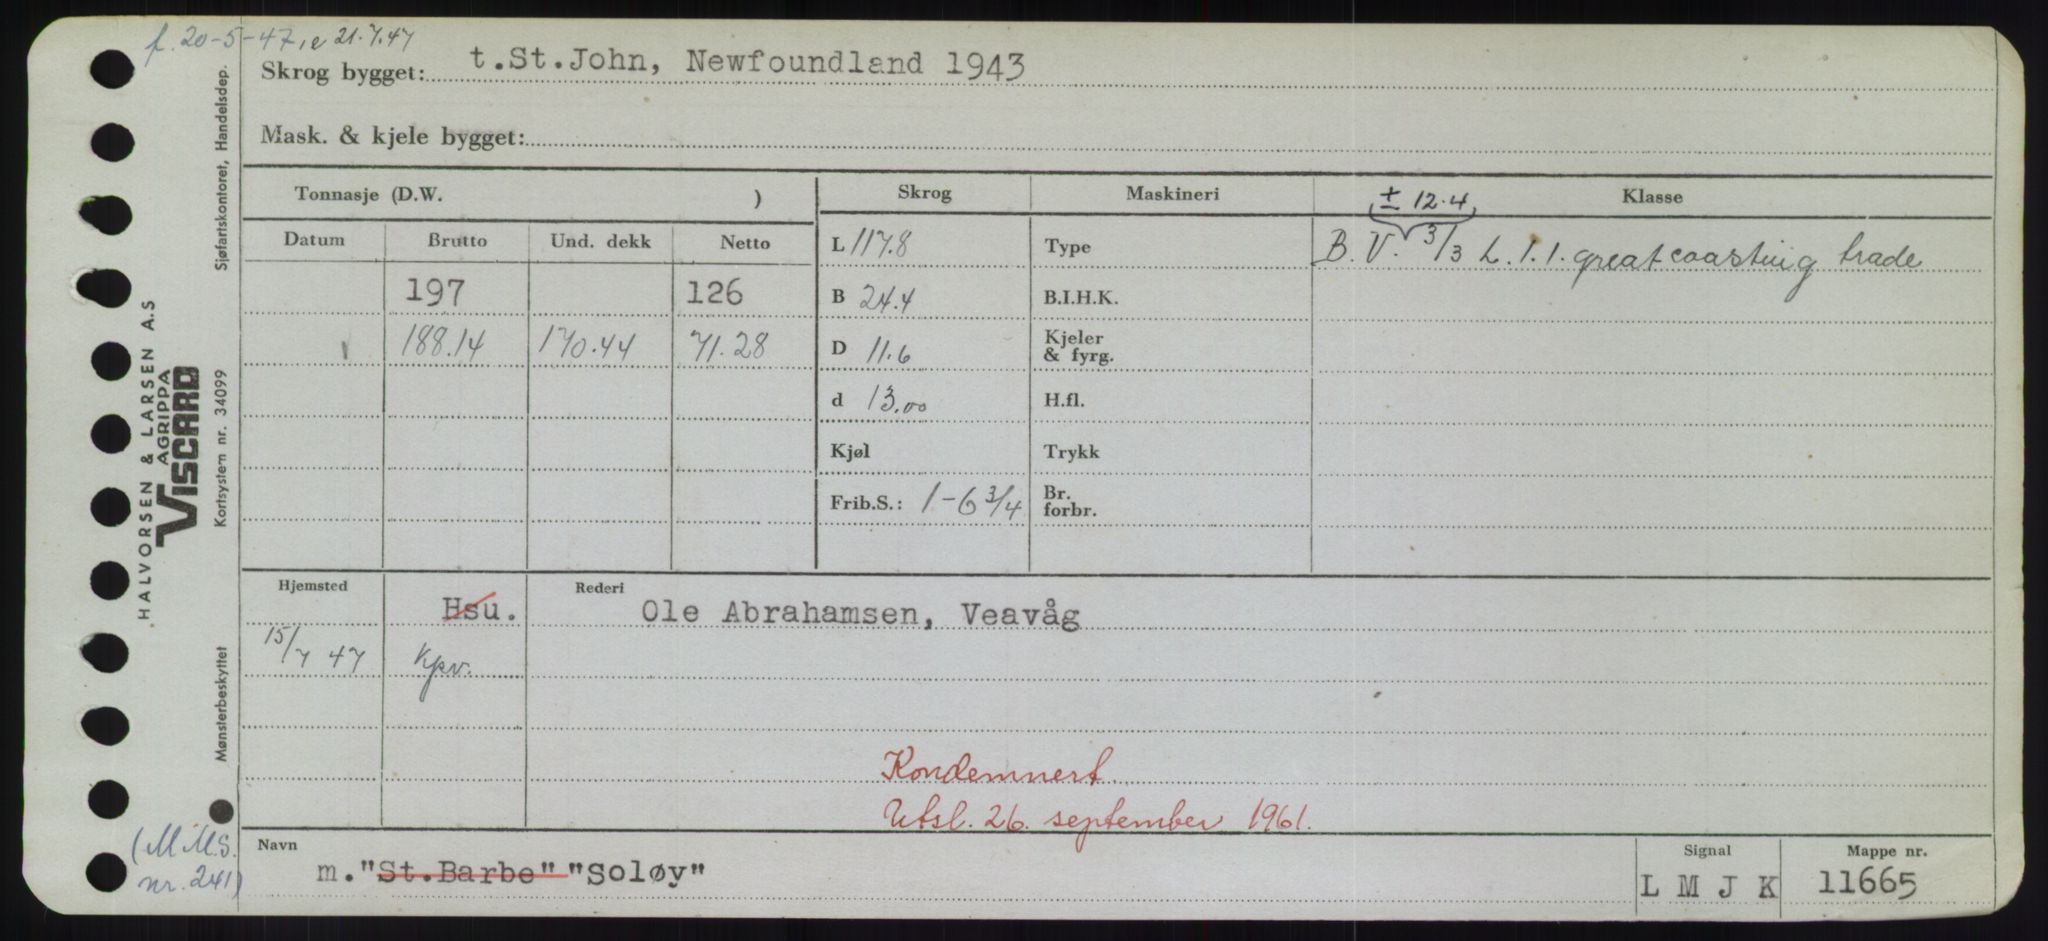 f. 20-5-47, e 21.7.47
Skrog bygget: t.St.John, Newfoundland 1943
Mask. & kjele bygget:
Tonnasje (D.W. )
Skrog
Maskineri
± 12.4
Klasse
Datum Brutto Und. dekk Netto
L 117.8
Type
B.V. 3/3 L.1.1. great coasting trade
197 126
B 24.4
B.I.H.K.
188.14 170.44 71.28
D 11.6
Kjeler
& fyrg.
d 13.00
H.fl.
Kjøl
Trykk
Frib.S.: 1-6 3/4
Br.
forbr.
Hjemsted
Rederi
Hsu. Ole Abrahamsen, Veavåg
15/7 47 Kpv.
Kondemnert
Utsl. 26. september 1961.
Navn
m. "St.Barbe" "Soløy"
Signal
L M J K
Mappe nr.
11665
HALVORSEN & LARSEN A.S
AGRIPPA
VISCARD
Sjøfartskontoret, Handelsdep.
Kortsystem nr. 34099
Mønsterbeskyttet
(M.M.S.
nr. 241)